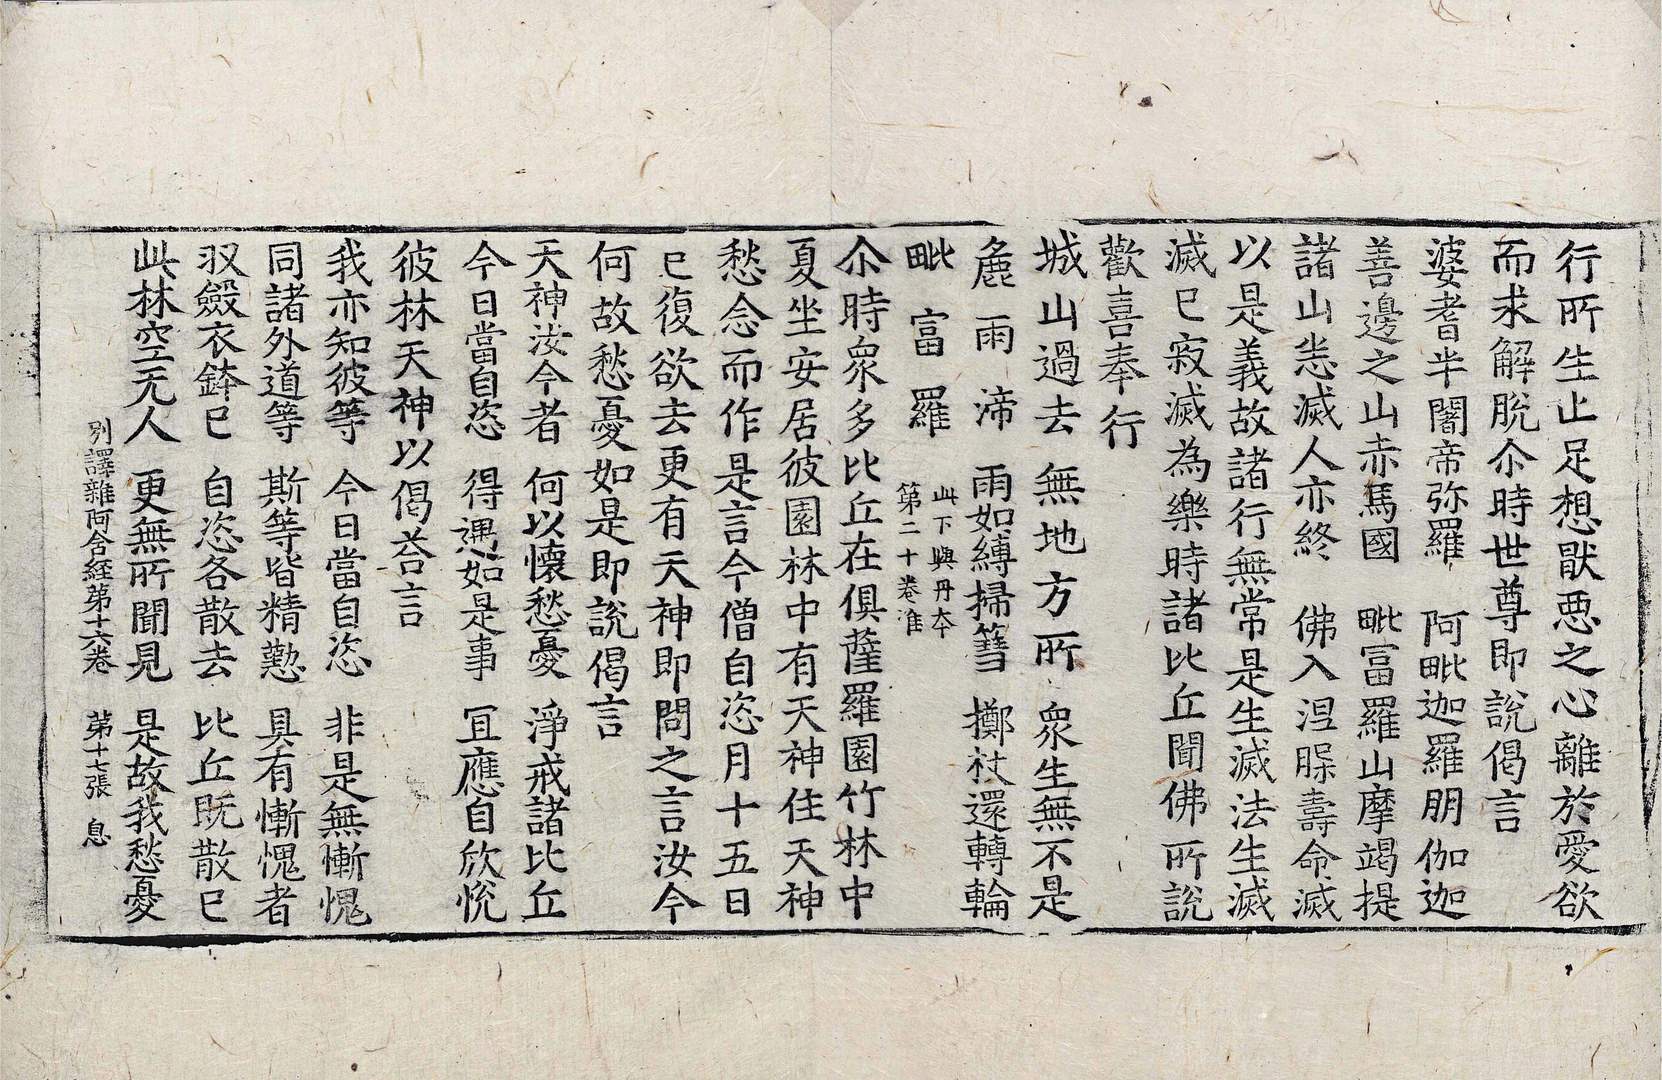 行所生止足想猒惡之心離於愛欲
而求解脫尒時世尊即說偈言
婆耆半闍帝弥羅　阿毗迦羅朋伽迦
善邊之山赤馬國　毗富羅山摩竭提
諸山悉滅人亦終　佛入涅槃壽命滅
以是義故諸行無常是生滅法生滅
滅已寂滅為樂時諸比丘聞佛所說
歡喜奉行
城山過去　無地方所　眾生無不是
麁雨渧　雨如縛掃篲　擲杖還轉輪
毗富羅　此下與丹夲
第二十卷准
尒時衆多比丘在俱薩羅園竹林中
夏坐安居彼園林中有天神住天神
愁念而作是言今僧自恣月十五日
已復欲去更有天神即問之言汝今
何故愁憂如是即說偈言
天神汝今者　何以懷愁憂　淨戒諸比丘
今日當自恣　得遇如是事　冝應自欣悅
彼林天神以偈荅言
我亦知彼等　今日當自恣　非是無慚愧
同諸外道等　斯等皆精懃　具有慚愧者
収斂衣鉢已　自恣各散去　比丘既散已
此林空无人　更無所聞見　是故我愁憂
別譯雜阿含經第十六卷　第十七張　息